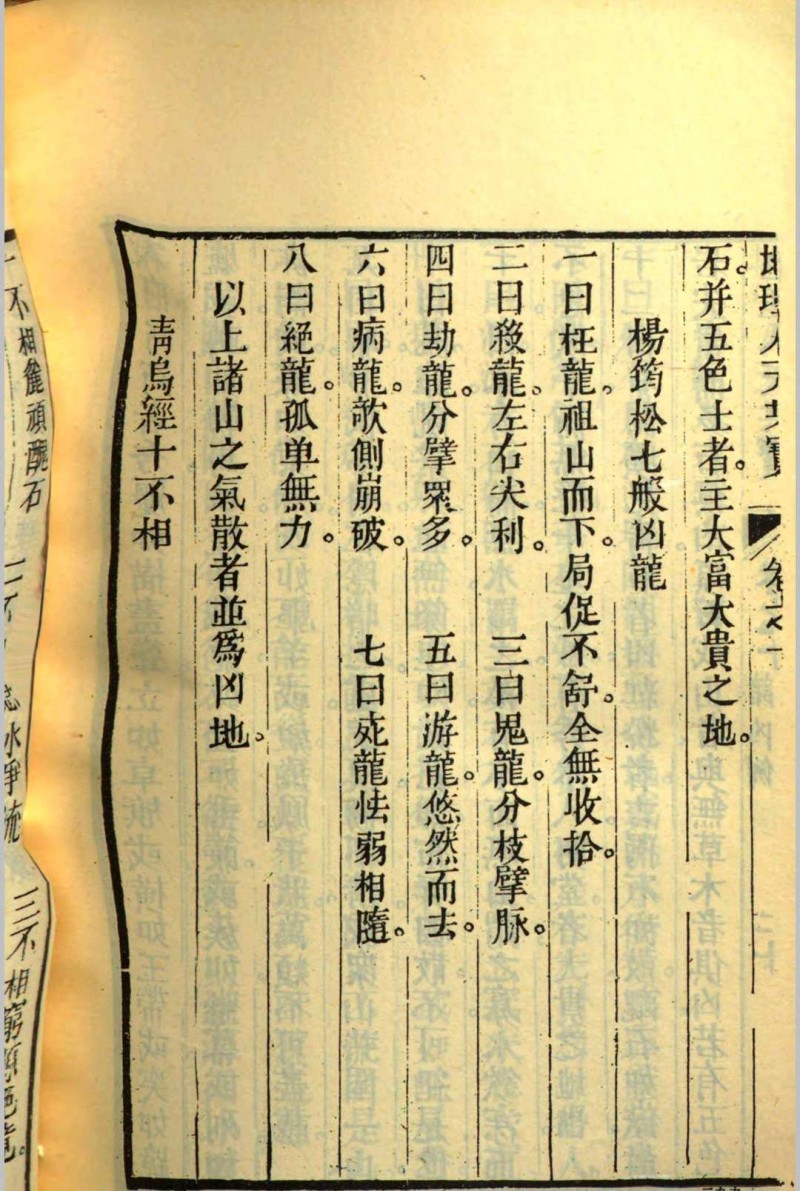 石。并五色士者。主大富大貴之地。
楊筠松七般凶龍
一曰枉龍。祖山而下。局促不舒。全無收拾。
二曰殺龍、左右尖利。 三曰鬼龍。分枝擘脉。
四曰劫龍。分擘眾多。 五曰游龍。悠然而去。
六曰病龍。欹側崩破。 七曰死龍怯弱相隨。
八曰絕龍。孤单無力。
以上諸山之氣散者並爲凶地。
靑烏經十不相
不相麄頑醜石
水爭流
三不相窮